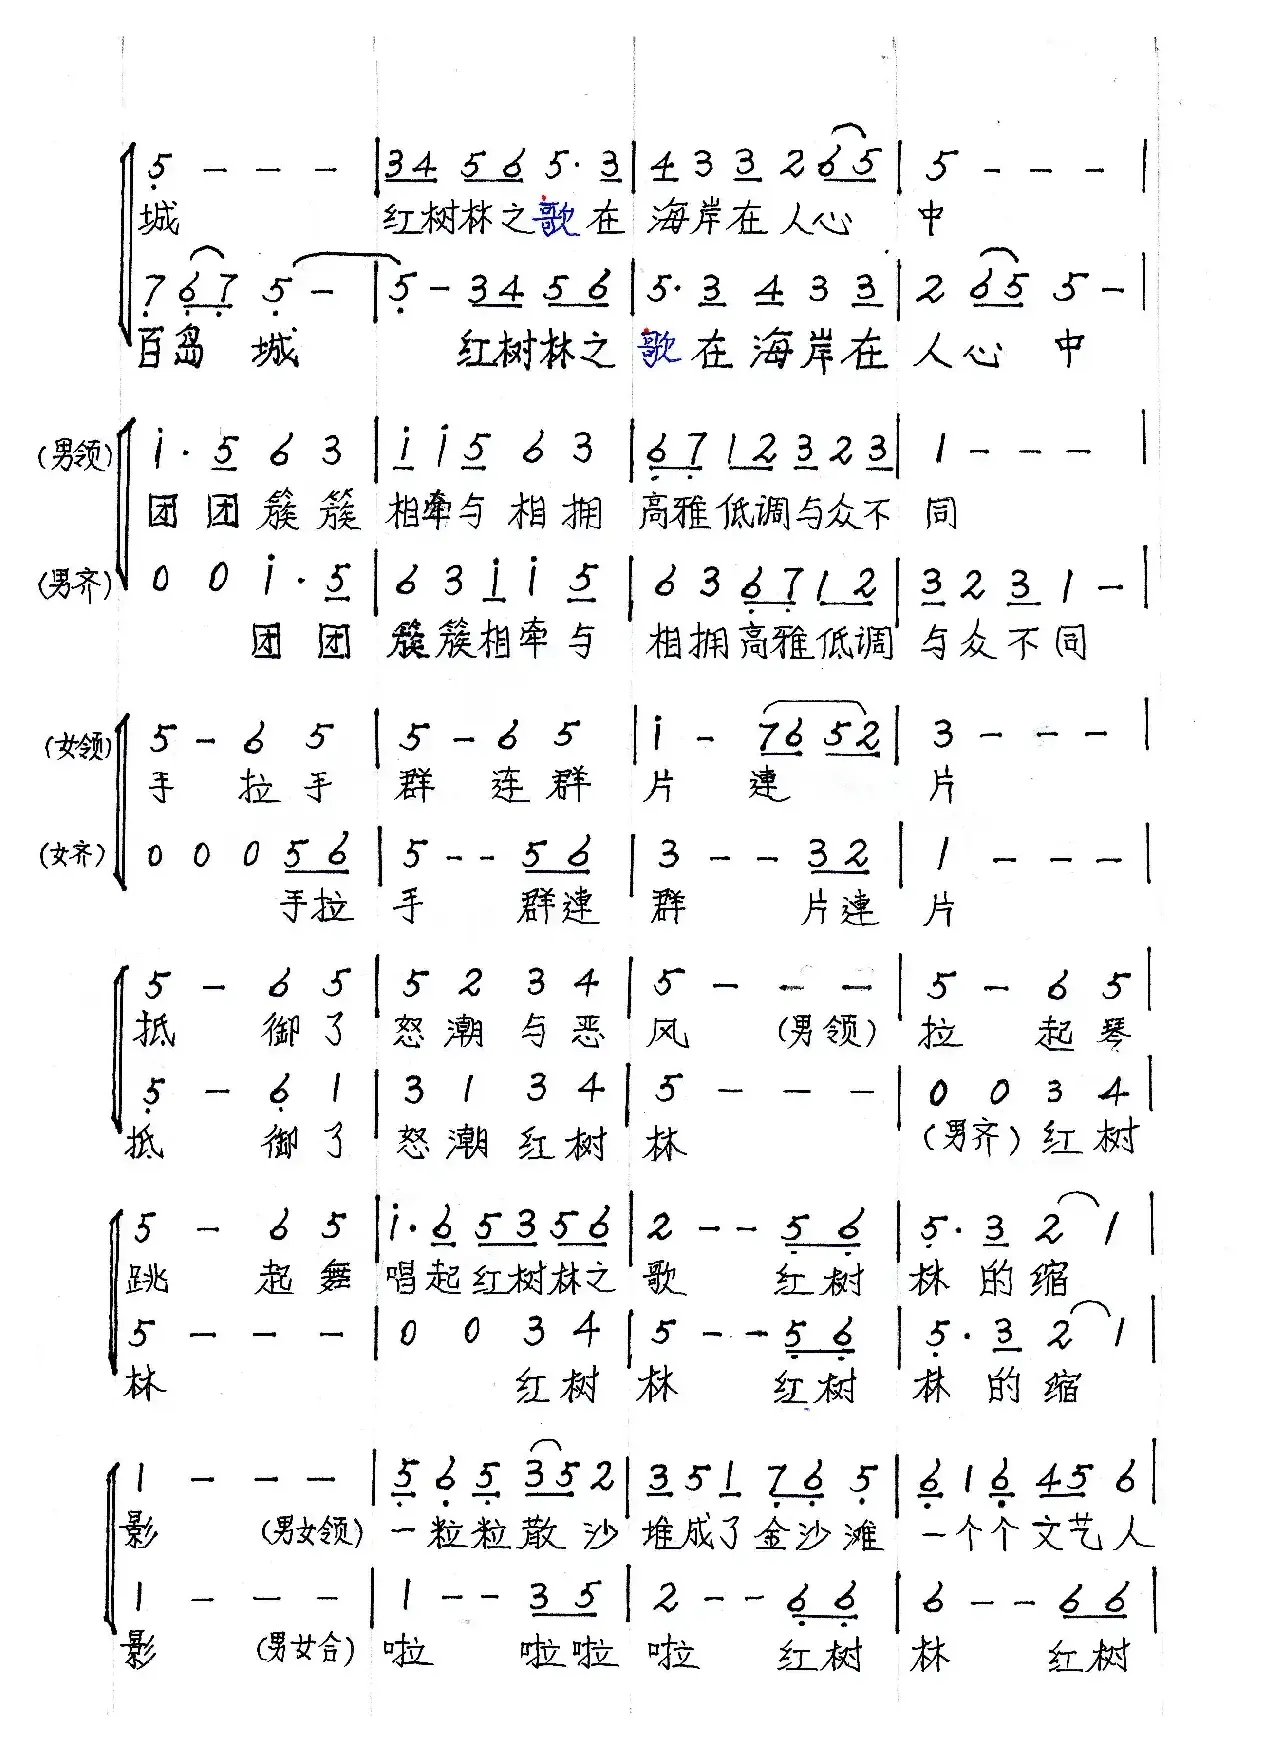 5 - - - | 34 56 5· 3 | 4 3 3 2 65 | 5 - - - |
城 红树林之歌在 海岸在人心 中
7 67 5 - | 5 - 34 56 | 5· 3 4 3 3 | 2 65 5 - |
百岛 城 红树林之 歌在海岸在 人心 中
(男领) i· 5 6 3 | i i 5 6 3 | 67 12 3 2 3 | 1 - - - |
团团簇簇 相牵与相拥 高雅低调与众不 同
(男齐) 0 0 i· 5 | 6 3 i i 5 | 6 3 67 12 | 3 2 3 1 - |
团团 簇簇相牵与 相拥高雅低调 与众不同
(女领) 5 - 6 5 | 5 - 6 5 | i - 76 52 | 3 - - - |
手 拉手 群 连群 片 連 片
(女齐) 0 0 0 56 | 5 - - 56 | 3 - - 32 | 1 - - - |
手拉 手 群連 群 片連 片
5 - 6 5 | 5 2 3 4 | 5 - - - | 5 - 6 5 |
抵 御了 怒潮与恶 风 (男领) 拉 起琴
5 - 6 1 | 3 1 3 4 | 5 - - - | 0 0 3 4 |
抵 御了 怒潮红树 林 (男齐) 红树
5 - 6 5 | i· 6 53 56 | 2 - - 56 | 5· 3 2 1 |
跳 起舞 唱起红树林之 歌 红树 林的缩
5 - - - | 0 0 3 4 | 5 - - 56 | 5· 3 2 1 |
林 红树 林 红树 林的缩
1 - - - | 5 6 5 35 2 | 3 5 1 76 5 | 6 1 6 45 6 |
影 (男女领) 一粒粒散沙 堆成了金沙滩 一个个文艺人
1 - - - | 1 - - 35 | 2 - - 66 | 6 - - 66 |
影 (男女合) 啦 啦啦 啦 红树 林 红树